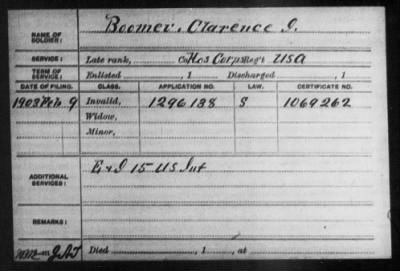 NAME OF SOLDIER: Boomer, Clarence I.
SERVICE: Late rank, Co Hos Corps Reg't USA
TERM OF SERVICE: Enlisted , 1 Discharged , 1
DATE OF FILING. CLASS. APPLICATION NO. LAW. CERTIFICATE NO.
1903 Feb. 9 Invalid, 1296138 S 1069262
Widow,
Minor,
ADDITIONAL SERVICES: E & I 15 US Inf
REMARKS:
Died , 1 , at